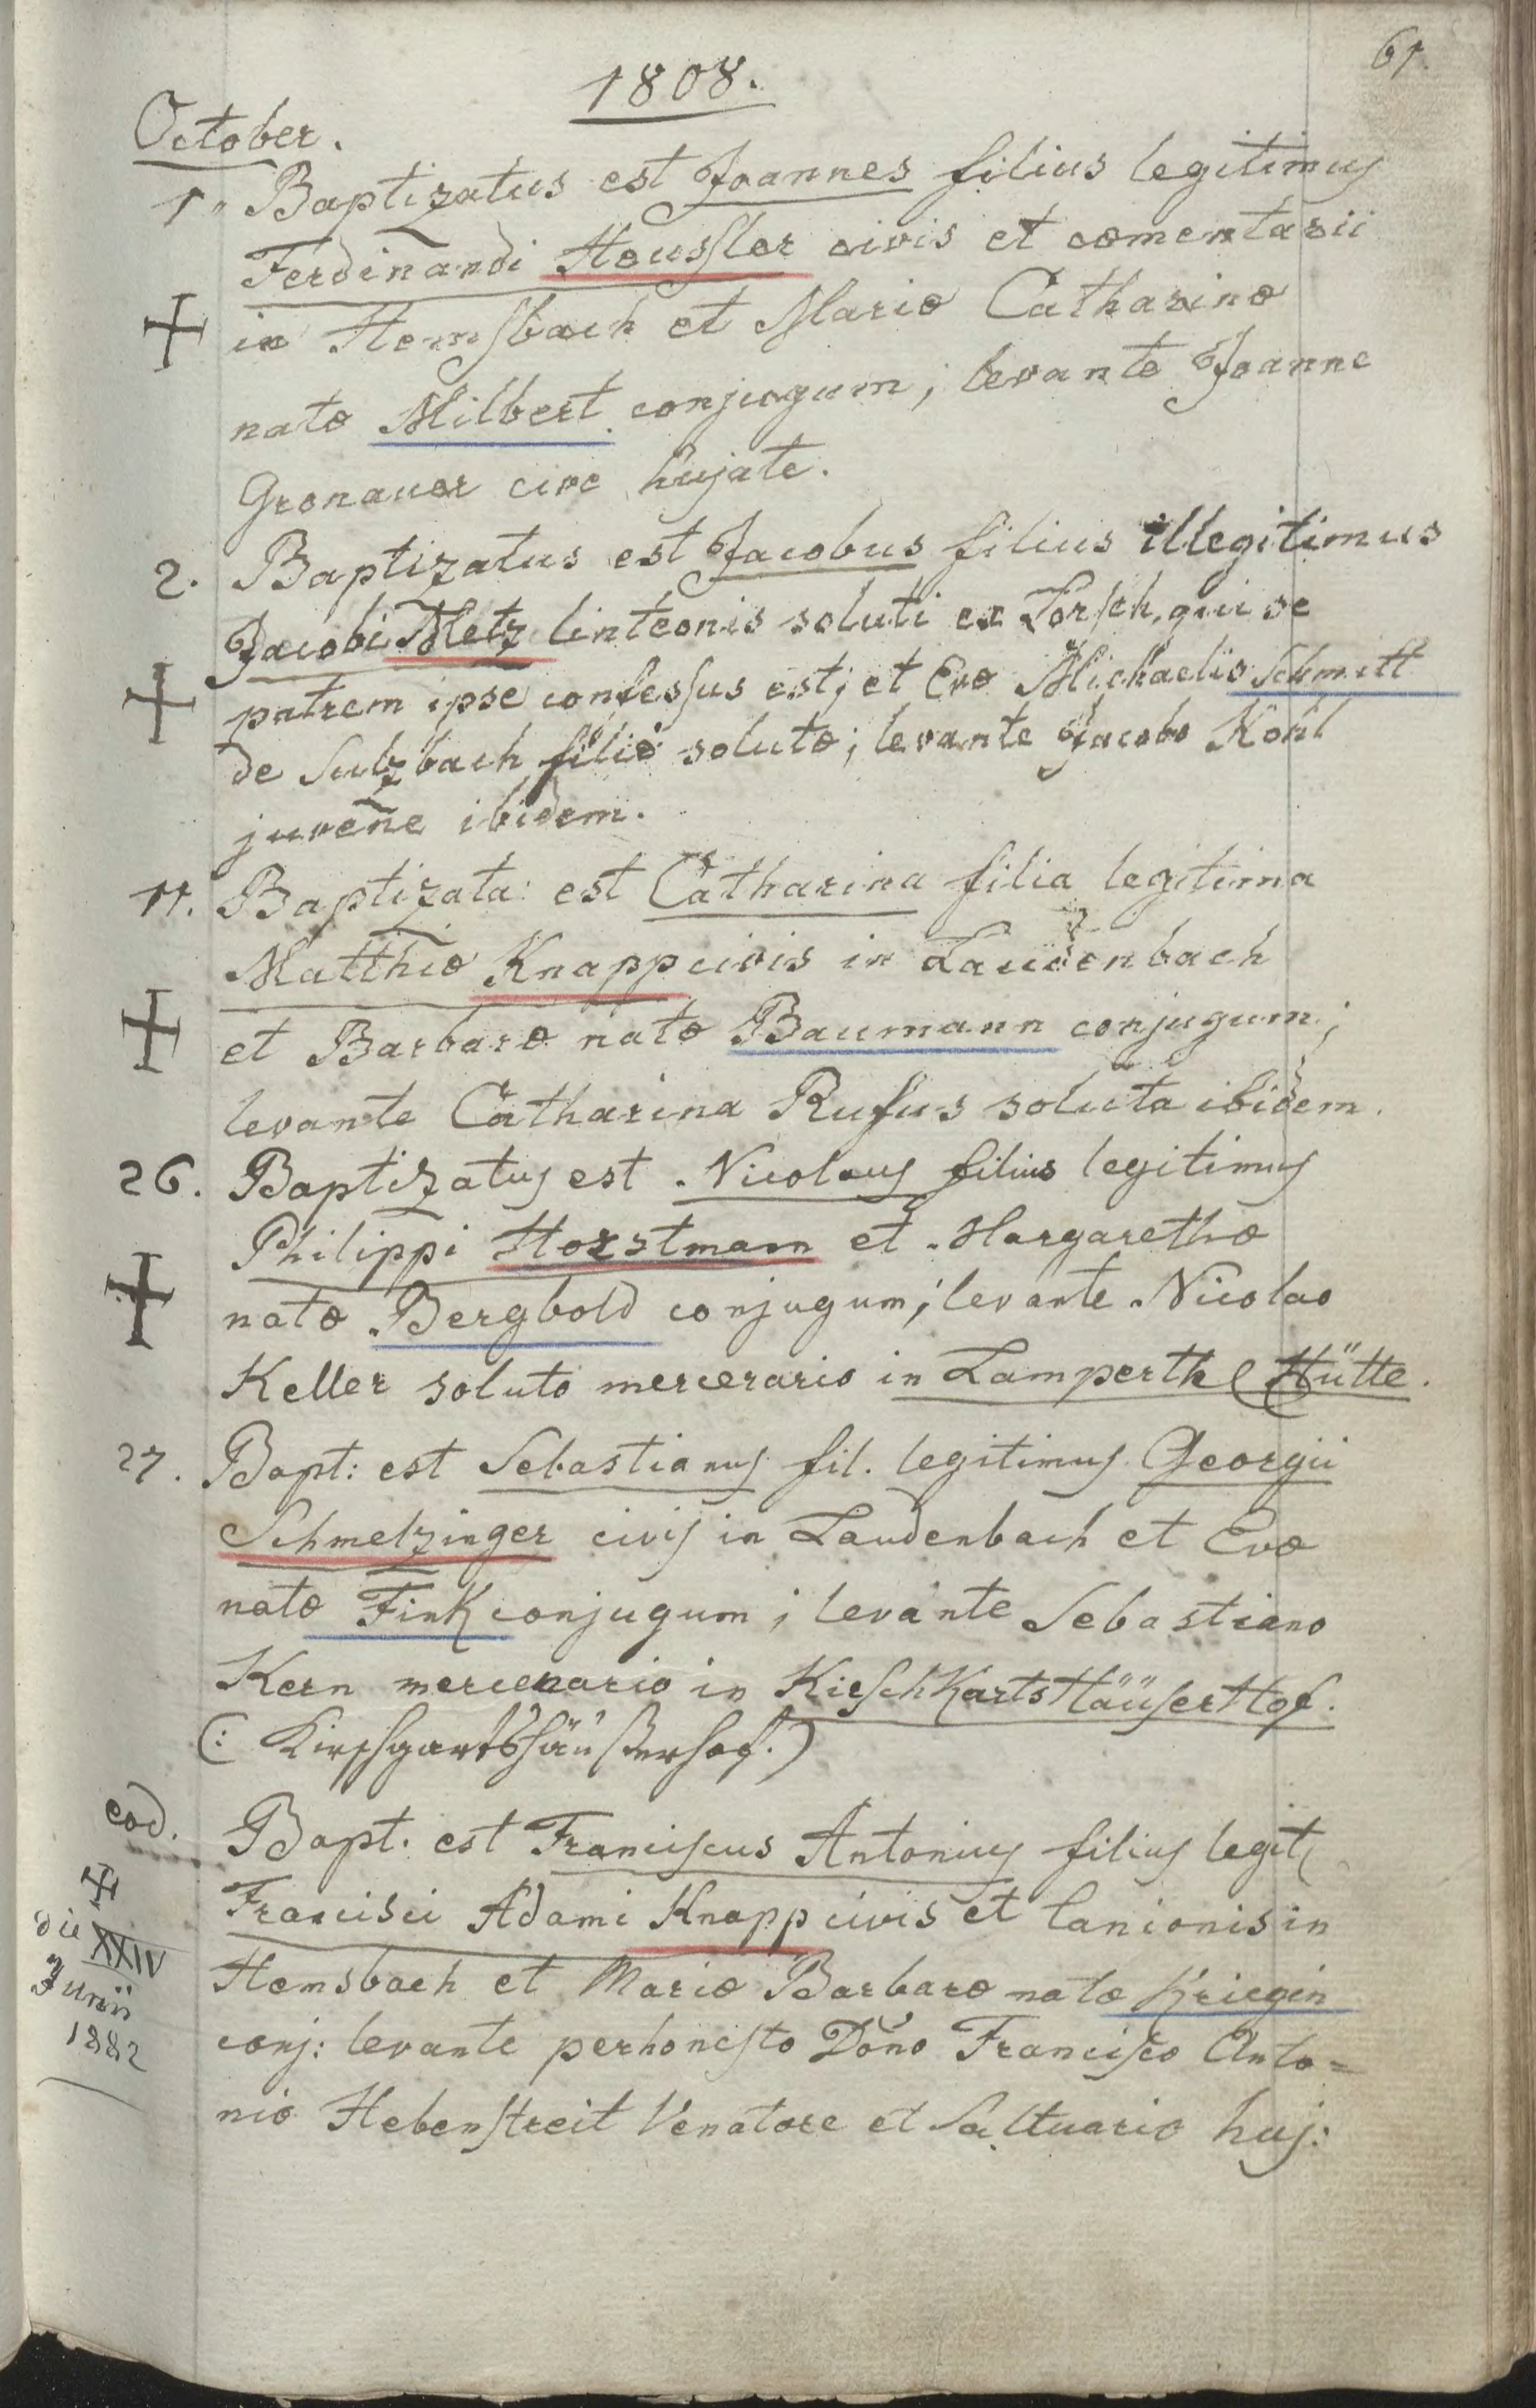 61.
1808.
October.
1. Baptizatus est Joannes filius legitimus
Ferdinandi Heussler civis et cæmentarii
in Hemsbach et Mariæ Catharinæ
natæ Milbert conjugum; levante Joanne
Gronauer cive hujate.
2. Baptizatus est Jacobus filius illegitimus
Jacobi Metz linteonis soluti ex Lorsch, qui se
patrem ipse confessus est; et Evæ Michaelis Schmitt
de Sulzbach filiæ solutæ; levante Jacobo Kohl
juvene ibidem.
11. Baptizata: est Catharina filia legitima
Matthiæ Knapp civis in Laudenbach
et Barbaræ natæ Baumann conjugum;
levante Catharina Rufus soluta ibidem.
26. Baptizatus est Nicolaus filius legitimus
Philippi Horstmann et Margarethæ
natæ Bergbold conjugum; levante Nicolao
Keller soluto mercenario in Lamperth Hütte.
27. Bapt: est Sebastianus fil. legitimus Georgii
Schmelzinger civis in Laudenbach et Evæ
natæ Fink conjugum; levante Sebastiano
Kern mercenario in KirschKartsHäüserHof.
(: Kirschgartshäußerhof.)
eod. Bapt. est Franciscus Antonius filius legit
Francisci Adami Knapp civis et lanionis in
Hemsbach et Mariæ Barbaræ natæ Kriegin
conj: levante perhonesto Dõno Francisco Anto=
nio Hebenstreit Venatore et Saltuario huj:
die XXIV
Junii
1882